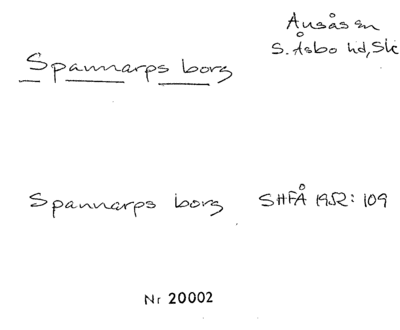 Ausåsen
S. Åsbo hd, Sk
Spannarps borg
Spannarps borg SHFÅ 1952: 109
Nr 20002